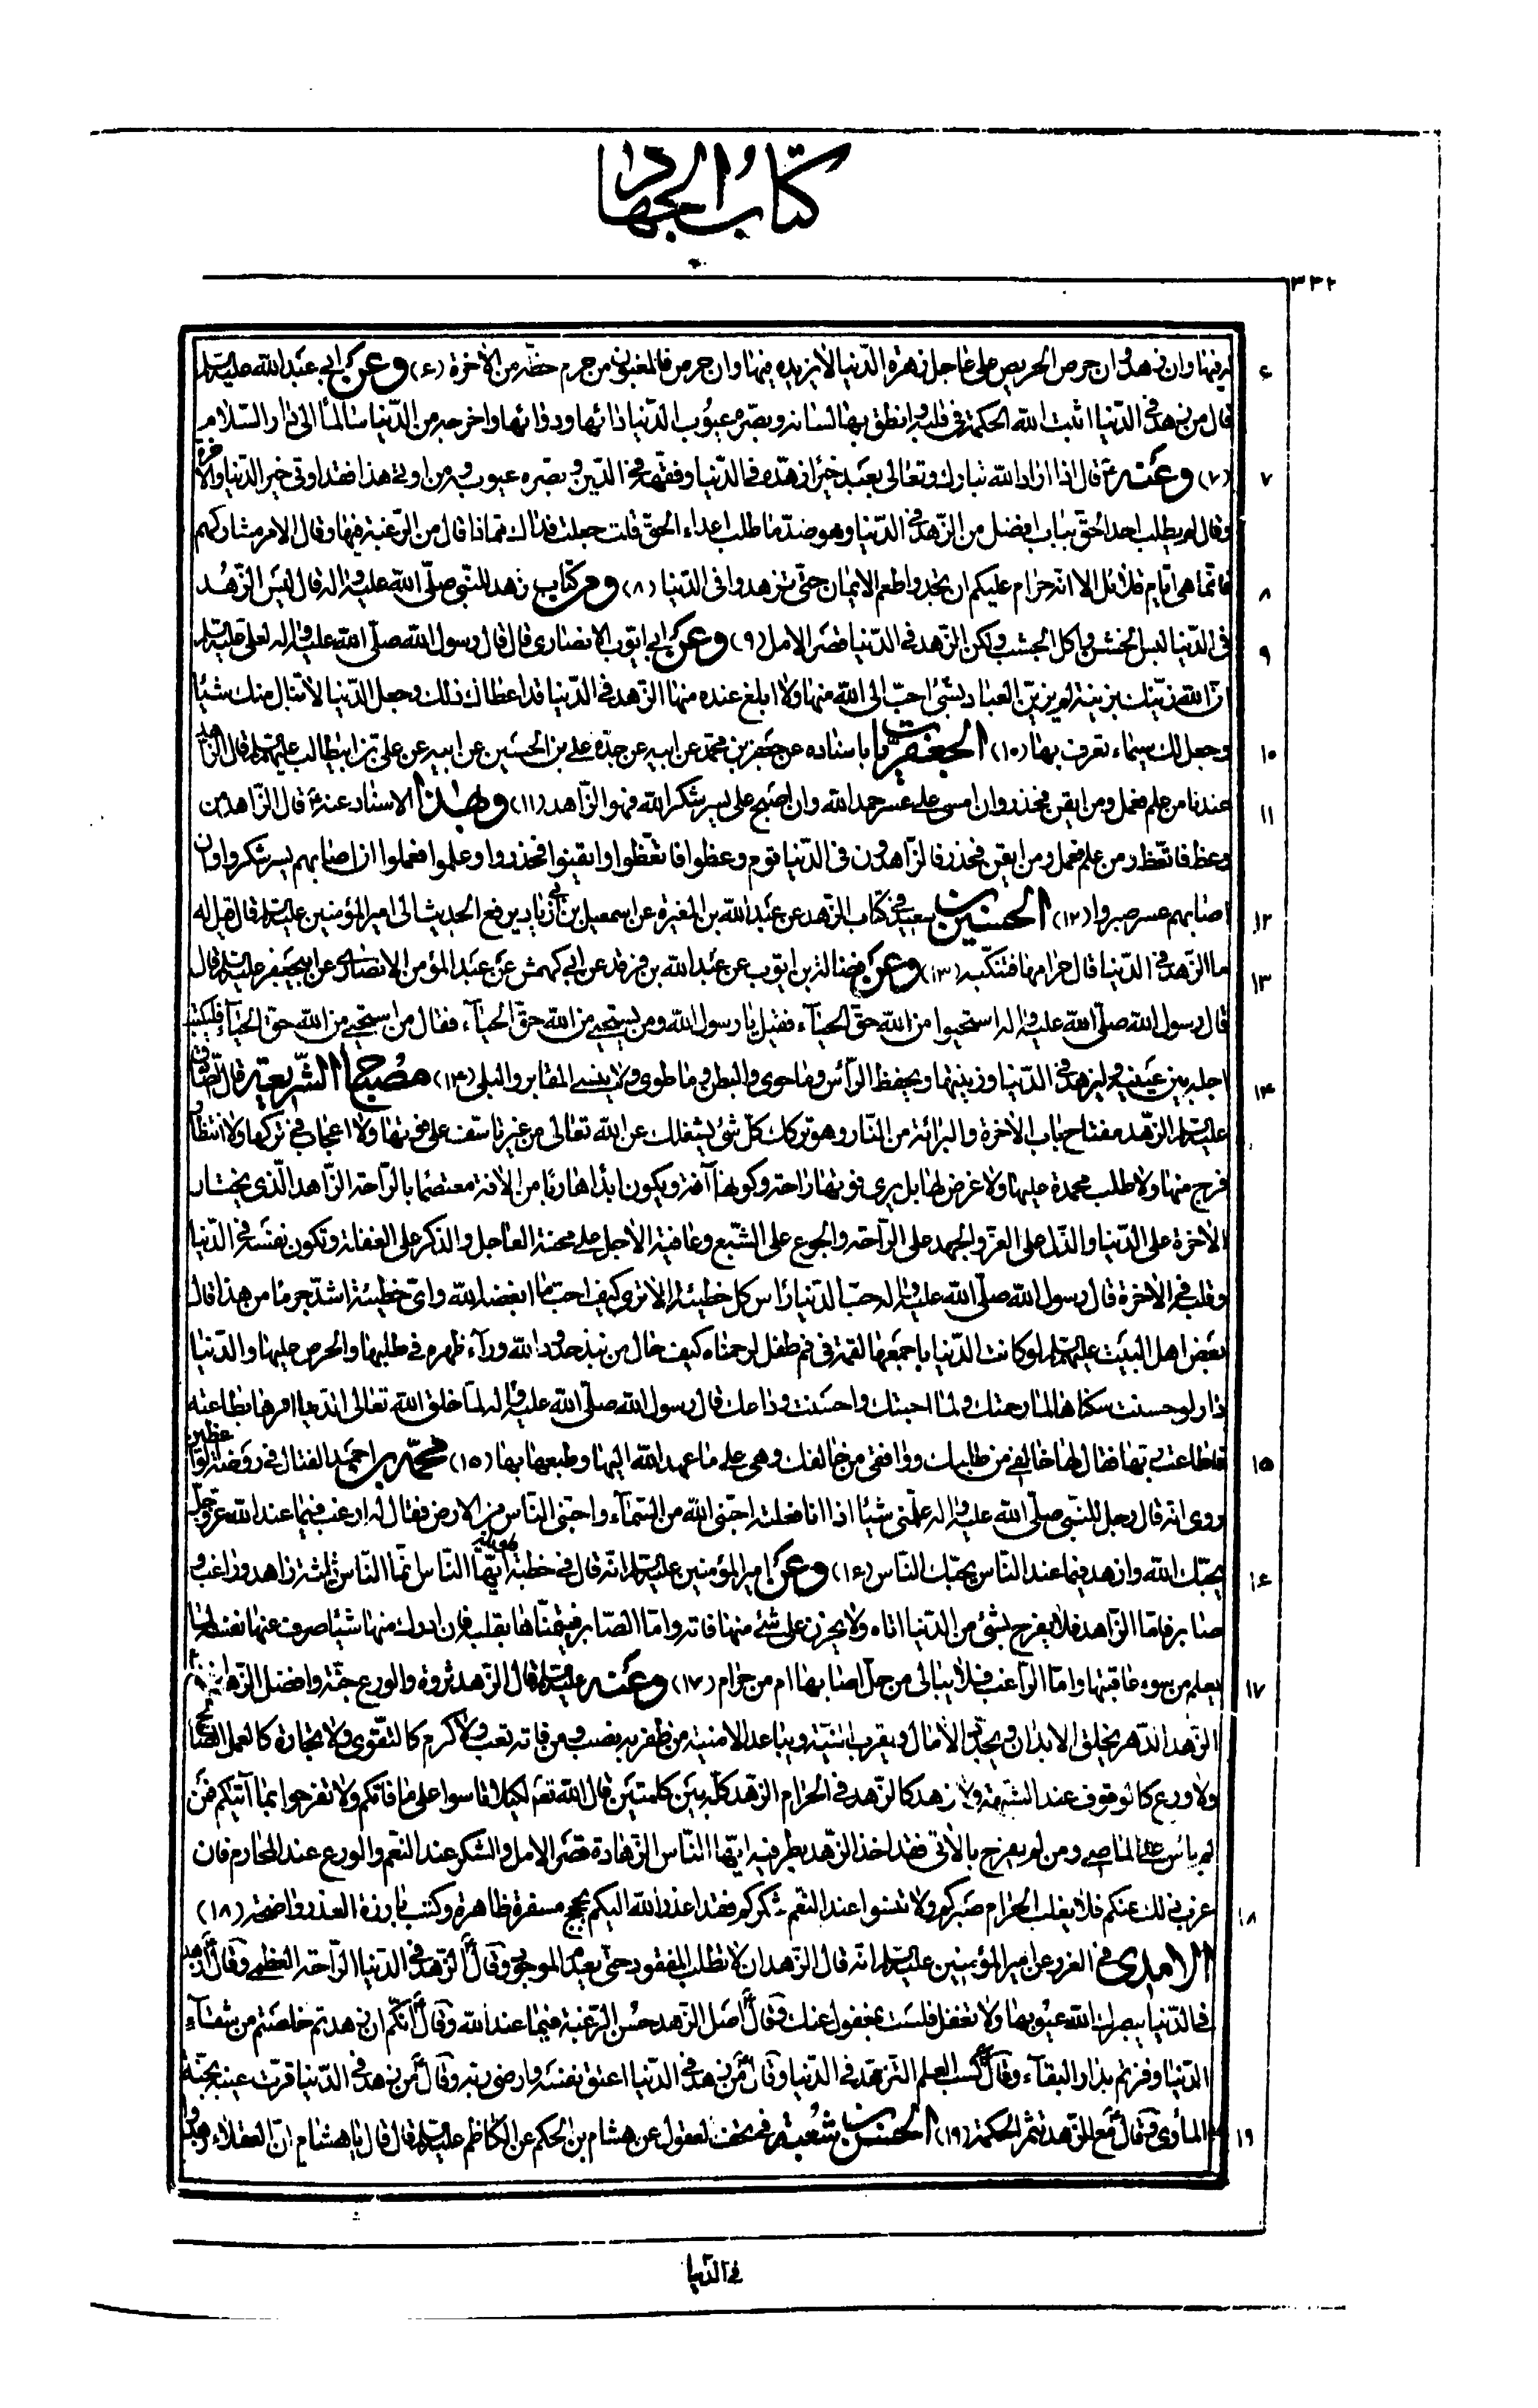 كتاب الجهاد
٣٣٢
له فيها وان زهد وان حرص الحريص على عاجل زهرة الدنيا لا يزيده فيها وان حرص فالمغبون من حرم حظه من الاخرة (٦) وعن ابي عبد الله عليه السلم
٦
قال من زهد في الدنيا اثبت الله الحكمة في قلبه وانطق بها لسانه وبصره عيوب الدنيا دائها ودوائها واخرجه من الدنيا سالما الى دار السلام
(٧) وعنه ع قال اذا اراد الله تبارك وتعالى بعبد خيرا زهده في الدنيا وفقهه في الدين وبصره عيوبه ومن اوتي هذا فقد اوتي خير الدنيا والاخرة
٧
وقال لم يطلب احد الحق بباب افضل من الزهد في الدنيا وهو ضد ما طلب اعداء الحق قلت جعلت فداك مماذا قال من الرغبة فيها وقال الا من
فانما هي ايام قلائل الا انه حرام عليكم ان تجدوا طعم الايمان حتى تزهدوا في الدنيا (٨) ومن كتاب زهد النبي صلى الله عليه واله قال ليس الزهد
٨
في الدنيا لبس الخشن واكل الجشب ولكن الزهد في الدنيا قصر الامل (٩) وعن ابي ايوب الانصاري قال قال رسول الله صلى الله عليه واله لعلي عليه السلم
٩
ان الله زينك بزينة لم يزين العباد بشئ احب الى الله منها ولا ابلغ عنده منها الزهد في الدنيا قد اعطاك ذلك وجعل الدنيا لا تنال منك شيئا
وجعل لك سيماء تعرف بها (١٠) الجعفريات باسناده عن جعفر بن محمد عن ابيه عن جده علي بن الحسين عن ابيه عن علي بن ابيطالب عليهم السلم قال الزاهد
١٠
عندنا من علم فعمل ومن ايقن فحذر وان امسى على عسر حمد الله وان اصبح على يسر شكر الله فهو الزاهد (١١) وبهذا الاسناد عنه ع قال الزاهد من
١١
وعظ فاتعظ ومن علم فعمل ومن ايقن فحذر فالزاهدون في الدنيا قوم وعظوا فاتعظوا وايقنوا فحذروا وعلموا فعملوا ان اصابهم يسر شكروا وان
اصابهم عسر صبروا (١٢) الحسين بن سعيد في كتاب الزهد عن عبد الله بن المغيرة عن اسمعيل بن ابي زياد يرفع الحديث الى امير المؤمنين عليه السلم قال قيل له
١٢
ما الزهد في الدنيا قال حرامها فتنكبه (١٣) وعن فضالة بن ايوب عن عبد الله بن فرقد عن ابي كهمش عن عبد المؤمن الانصاري عن ابيجعفر عليه السلم قال
١٣
قال رسول الله صلى الله عليه واله استحيوا من الله حق الحياء فقيل يا رسول الله ومن يستحيي من الله حق الحياء فقال من استحيى من الله حق الحياء فليكتب
اجله بين عينيه وليزهد في الدنيا وزينتها ويحفظ الراس وما حوى والبطن وما طوى ولا ينسى المقابر والبلى (١٤) مصباح الشريعة قال الصادق
١٤
عليه السلم الزهد مفتاح باب الاخرة والبرائة من النار وهو تركك كل شئ يشغلك عن الله تعالى من غير تاسف على فوتها ولا اعجاب في تركها ولا انتظار
فرج منها ولا طلب محمدة عليها ولا عوض لها بل يرى فوتها راحة وكونها آفة ويكون ابدا هاربا من الافة معتصما بالراحة الزاهد الذي يختار
الاخرة على الدنيا والذل على العز والجهد على الراحة والجوع على الشبع وعافية الاجل على محنة العاجل والذكر على الغفلة وتكون نفسه في الدنيا
وقلبه في الاخرة قال رسول الله صلى الله عليه واله حب الدنيا راس كل خطيئة الا ترى كيف احب ما ابغضه الله واي خطيئة اشد جرما من هذا قال
بعض اهل البيت عليهم السلم لو كانت الدنيا باجمعها لقمة في فم طفل لرحمناه كيف حال من نبذ حدود الله وراء ظهره في طلبها والحرص عليها والدنيا
دار لو حسنت سكناها لما رحمتك ولما احبتك واحسنت وداعك قال رسول الله صلى الله عليه واله لما خلق الله تعالى الدنيا امرها بطاعته
فاطاعت ربها فقال لها خالفي من طلبك ووافقي من خالفك وهي على ما عهد الله اليها وطبعها بها (١٥) محمد بن احمد الفتال في روضة الواعظين
١٥
روى انه قال رجل للنبي صلى الله عليه واله علمني شيئا اذا انا فعلته احبني الله من السماء واحبني الناس من الارض فقال له ارغب فيما عند الله عز وجل
يحبك الله وازهد فيما عند الناس يحبك الناس (١٦) وعن امير المؤمنين عليه السلم انه قال في خطبة طويلة ايها الناس انما الناس ثلثة زاهد وراغب و
١٦
صابر فاما الزاهد فلا يفرح بشئ من الدنيا اتاه ولا يحزن على شئ منها فاته واما الصابر فيتمناها بقلبه فان ادرك منها شيئا صرف عنها نفسه لما
يعلم من سوء عاقبتها واما الراغب فلا يبالي من حل اصابها ام من حرام (١٧) وعنه عليه السلم قال الزهد ثروة والورع جنة وافضل الزهد اخفاء
١٧
الزهد الدهر يخلق الابدان ويجدد الامال ويقرب المنية ويباعد الامنية من ظفر به نصب ومن فاته تعب ولا كرم كالتقوى ولا تجارة كالعمل الصالح
ولا ورع كالوقوف عند الشبهة ولا زهد كالزهد في الحرام الزهد كله بين كلمتين قال الله تعم لكيلا تاسوا على ما فاتكم ولا تفرحوا بما آتيكم فمن
لم ياس على الماضي ومن لم يفرح بالاتي فقد اخذ الزهد بطرفيه ايها الناس الزهادة قصر الامل والشكر عند النعم والورع عند المحارم فان
عزب ذلك عنكم فلا يغلب الحرام صبركم ولا تنسوا عند النعم شكركم فقد اعذر الله اليكم بحجج مسفرة ظاهرة وكتب بارزة العذر واضحة (١٨)
١٨
الامدي في الغرر عن امير المؤمنين عليه السلم انه قال الزهد ان لا تطلب المفقود حتى يعدم الموجود وقال ع الزهد في الدنيا الراحة العظمى وقال ع ازهد
في الدنيا يبصرك الله عيوبها ولا تغفل فلست بمغفول عنك وقال ع اصل الزهد حسن الرغبة فيما عند الله وقال ع انكم ان زهدتم خلصتم من شقاء
الدنيا وفزتم بدار البقاء وقال ع كسب العلم التزهد في الدنيا وقال ع من زهد في الدنيا اعتق نفسه وارضى ربه وقال ع من زهد في الدنيا قرت عينه بجنة
الماوى وقال ع مع الزهد تثمر الحكمة (١٩) الحسن بن شعبة في تحف العقول عن هشام بن الحكم عن الكاظم عليه السلم قال قال يا هشام ان العقلاء زهدوا
١٩
في الدنيا